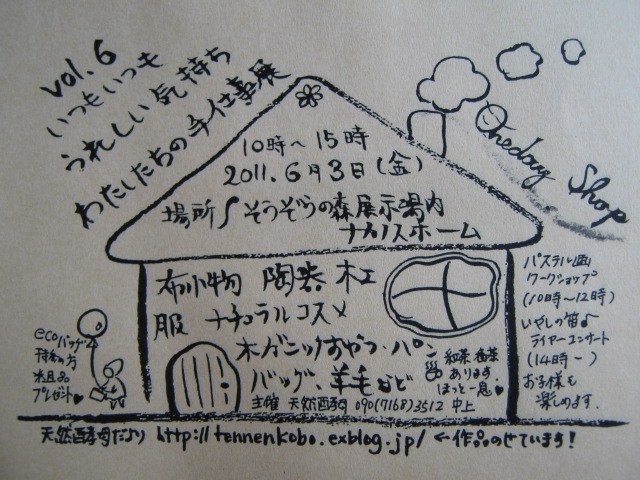 vol.6
いつもいつも
うれしい気持ち
わたしたちの手仕事展
Oneday Shop
10時～15時
2011.6月3日(金)
場所 そうぞうの森展示場内
ナカノスホーム
布小物 陶器 木工
服 ナチュラルコスメ
オガニックおやつ・パン
バッグ、羊毛など
紅茶・番茶
あります。
ほっと一息♥
主催 天然酵母 090(7168)3512 中上
パステル画
ワークショップ
(10時～12時)
いやしの笛♪
ライヤーコンサート
(14時～)
お子様も
楽しめます.
ecoバッグ
持参の方
粗品
プレゼント♥
天然酵母だより http://tennenkobo.exblog.jp/ ←作品のせています!